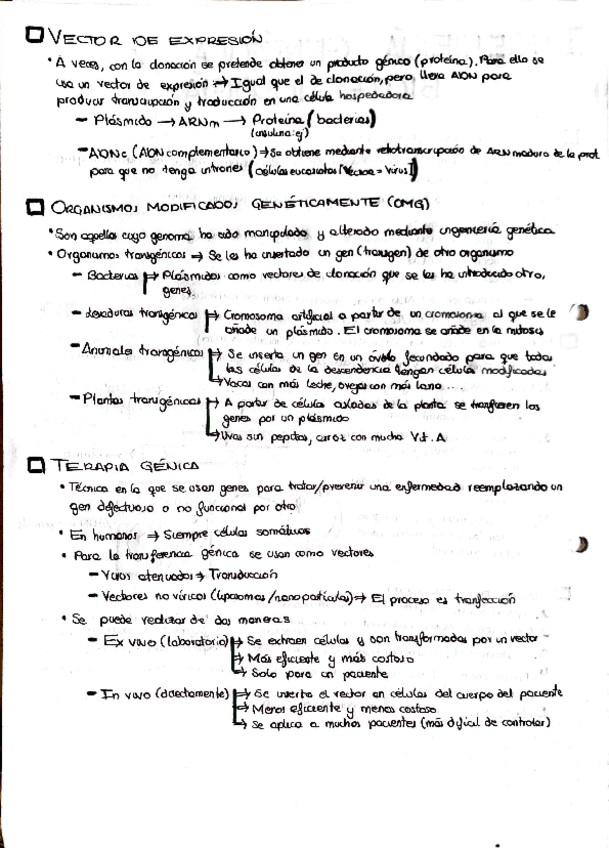 VECTOR DE EXPRESIÓN
• A veces, con la clonación se pretende obtener un producto génico (proteína). Para ello se
usa un vector de expresión → Igual que el de clonación, pero lleva ADN para
producir transcripción y traducción en una célula hospedadora
- Plásmido → ARNm → Proteína (bacterias)
(insulina: ej)
- ADNc (ADN complementario) → Se obtiene mediante retrotranscripción de ARN maduro de la prot.
para que no tenga intrones (células eucariotas [Vector = virus])
ORGANISMOS MODIFICADOS GENÉTICAMENTE (OMG)
• Son aquellos cuyo genoma ha sido manipulado y alterado mediante ingeniería genética
• Organismos transgénicos → Se les ha insertado un gen (transgen) de otro organismo
- Bacterias → Plásmidos como vectores de clonación que se les ha introducido otro,
genes
- Levaduras transgénicas → Cromosoma artificial a partir de un cromosoma al que se le
añade un plásmido. El cromosoma se añade en la mitosis
- Animales transgénicos → Se inserta un gen en un óvulo fecundado para que todas
las células de la descendencia tengan células modificadas
→ Vacas con más leche, ovejas con más lana ...
- Plantas transgénicas → A partir de célula aisladas de la planta se transfieren los
genes por un plásmido
→ Uvas sin pepitas, arroz con mucha Vit. A
TERAPIA GÉNICA
• Técnica en la que se usan genes para tratar/prevenir una enfermedad reemplazando un
gen defectuoso o no funcional por otro
• En humanos → Siempre células somáticas
• Para la transferencia génica se usan como vectores
- Virus atenuados → Transducción
- Vectores no víricos (liposomas/nanopartículas) → El proceso es transfección
• Se puede realizar de dos maneras
- Ex vivo (laboratorio) → Se extraen células y son transformadas por un vector
→ Más eficiente y más costoso
→ Solo para un paciente
- In vivo (directamente) → Se inserta el vector en células del cuerpo del paciente
→ Menos eficiente y menos costoso
→ Se aplica a muchos pacientes (más difícil de controlar)